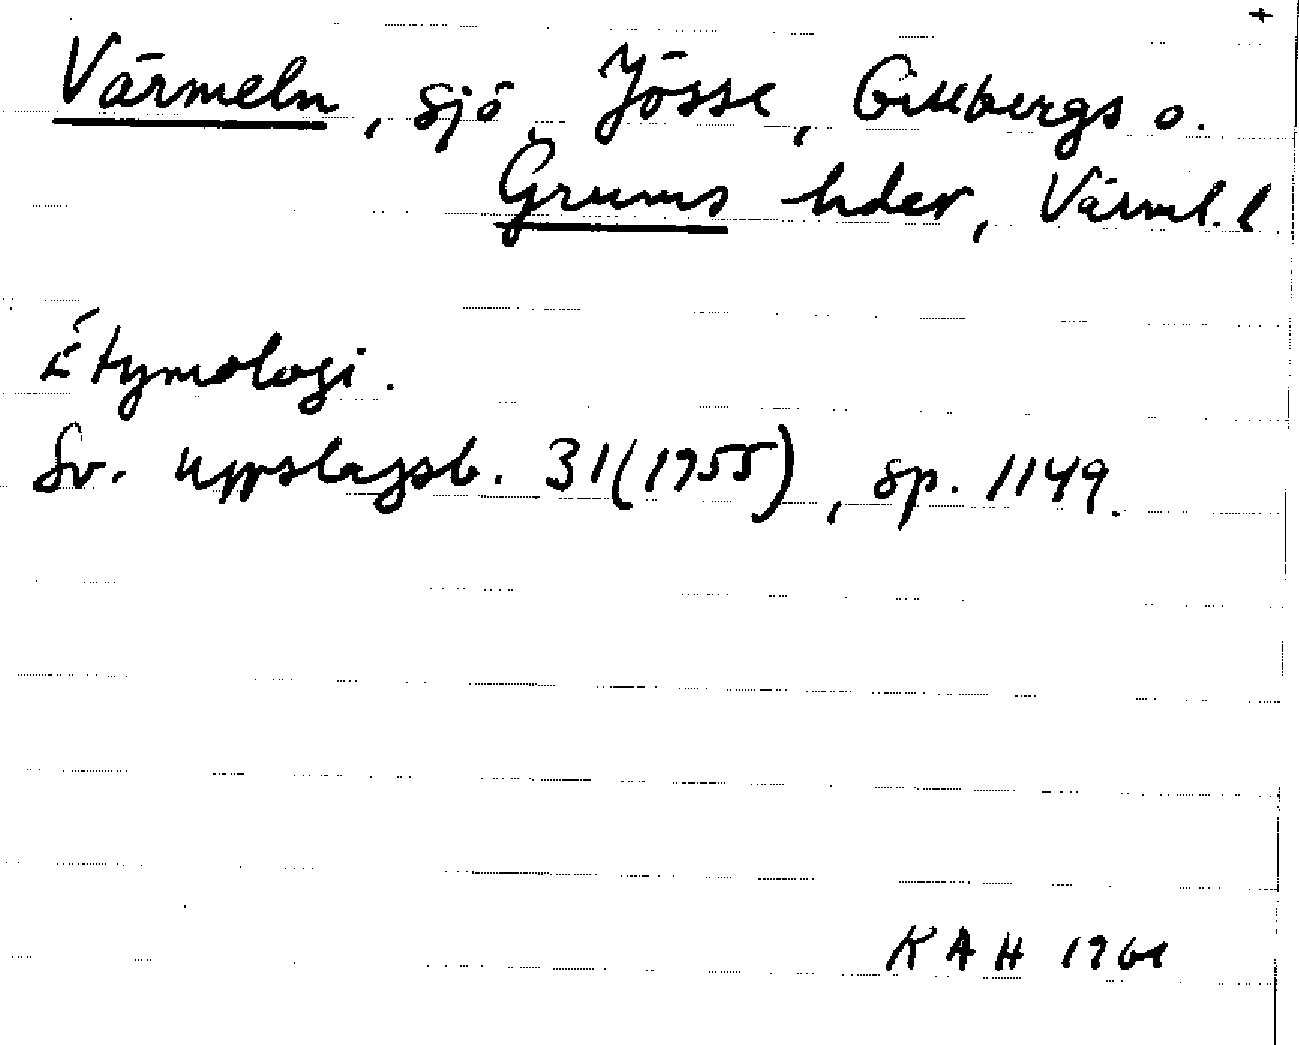 +
Värmeln, sjö, Jösse, Gillbergs o.
Grums hder, Värml. l
Etymologi.
Sv. uppslagsb. 31(1955), sp. 1149.
KAH 1961